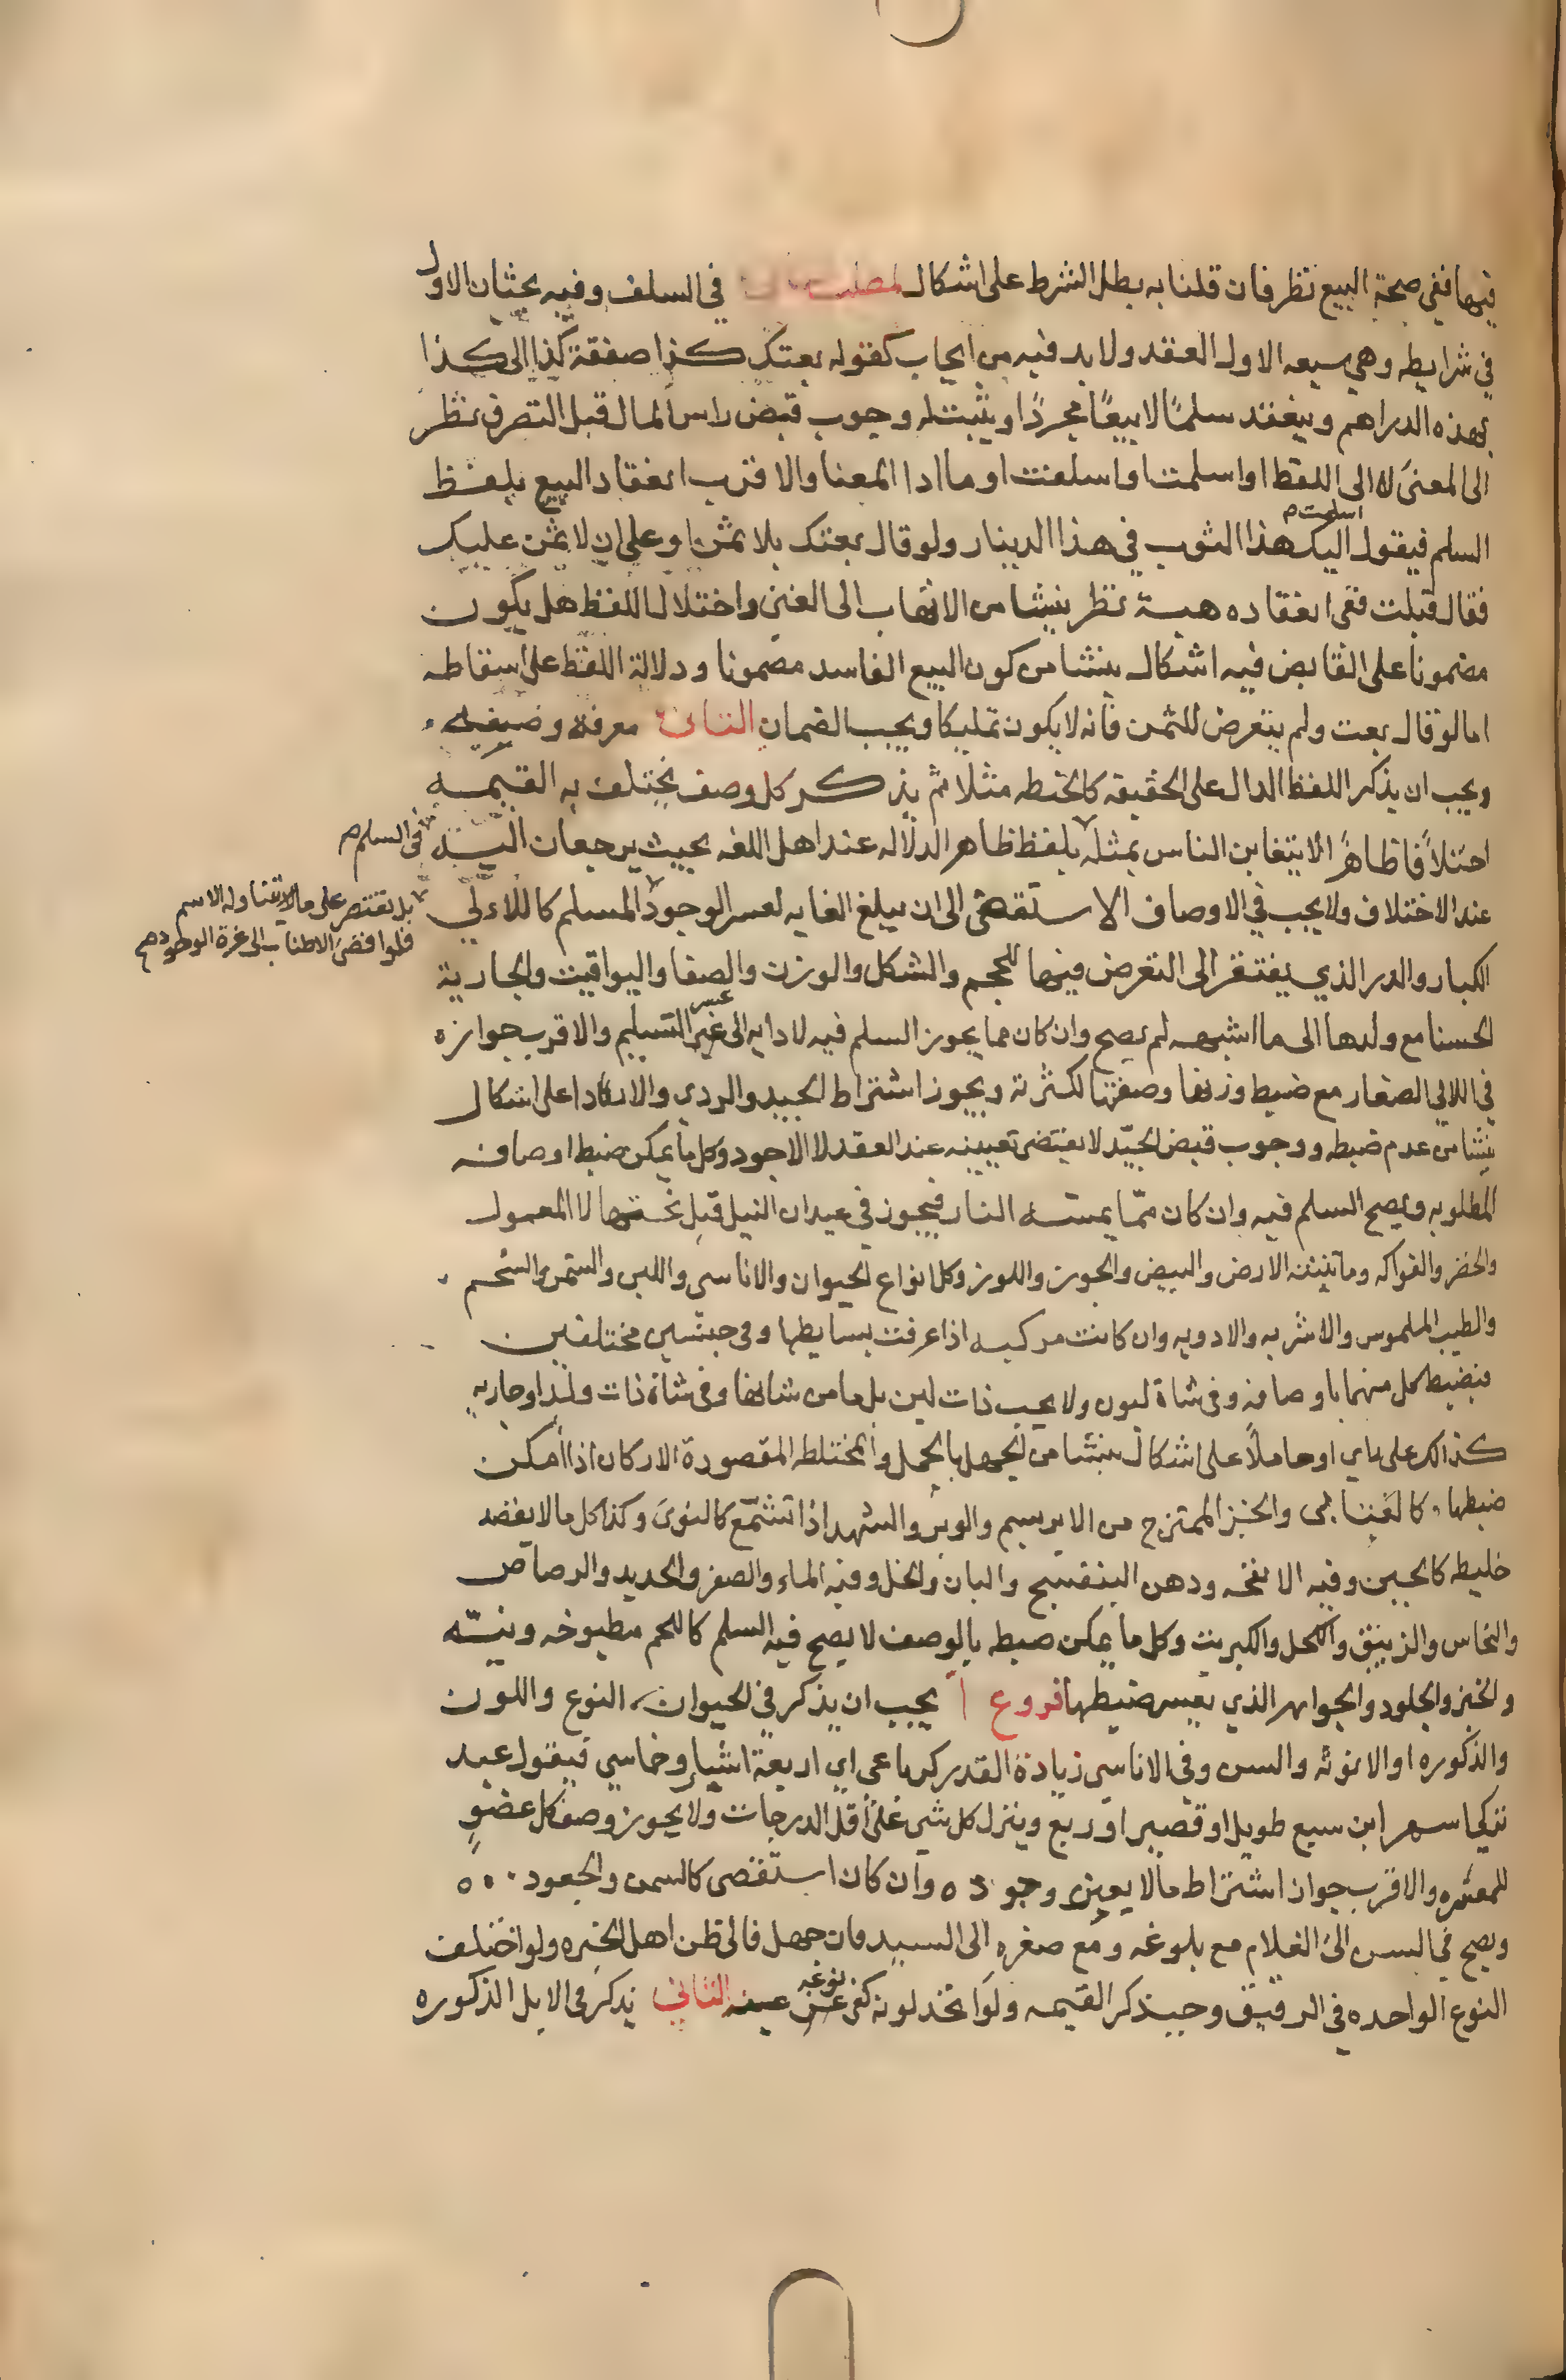 فيها ففي صحة البيع نظر فان قلنا به بطل الشرط على اشكال المطلب في السلف وفيه بحثان الاول
في شرايطه وهي سبعه الاول العقد ولابد فيه من ايجاب كقوله بعتك كذا صفقة كذا الى كذا
بهذه الدراهم وينعقد سلمًا لا بيعًا مجردًا ويثبت له وجوب قبض راس المال قبل التصرف نظر
الى المعنى لا الى اللفظ او اسلمت او اسلفت او ما ادا المعنا والاقرب انعقاد البيع بلفظ
السلم فيقول اسلمت اليك هذا الثوب في هذا الدينار ولو قال بعتك بلا ثمن او على ان لا ثمن عليك
فقال قبلت ففي انعقاده هبة نظر ينشا من الالتهاب الى المعنى واختلال اللفظ هل يكون
مضمونا على القابض فيه اشكال ينشا من كون البيع الفاسد مضمونا ودلالة اللفظ على اسقاطه
اما لو قال بعت ولم يتعرض للثمن فانه لا يكون تمليكا ويجب الضمان الثانى معرفة وصفيه
ويجب ان يذكر اللفظ الدال على الحقيقه كالحنطه مثلا ثم يذكر كل وصف يختلف به القيمه
اختلافا ظاهرًا لا يتغابن الناس بمثله في السلم بلفظ ظاهر الدلاله عند اهل اللغه بحيث يرجعان اليه
عند الاختلاف ولا يجب في الاوصاف الاستقصى الى ان يبلغ الغايه لعسر الوجود بل يقتصر على ما لا يتناوله الاسم
فلو افضى الاطناب الى عزة الوجود المسلم كاللاءلي
الكبار والدر الذي يفتقر الى التعرض فيها للحجم والشكل والوزن والصفا واليواقيت والجارية
الحسنا مع ولدها الى ما اشبهه لم يصح وان كان مما يجوز السلم فيه لادايه الى عسر التسليم والاقرب جوازه
في اللالي الصغار مع ضبط وزنها وصفتها لكثرته ويجوز اشتراط الجيد والردي والاردا على اشكال
ينشا من عدم ضبطه ووجوب قبض الجيّد لا يقتضى تعيينه عند العقد لا الاجود وكل ما يمكن ضبط اوصافه
المطلوبه ويصح السلم فيه وان كان ممّا يمسته النار فيجوز في عيدان النبل قبل نحتها لا المعمول
والخضر والفواكه وما تنبته الارض والبيض والجوز واللوز وكل انواع الحيوان والاناسى واللبن والسمن والشحم
والطيب الملموس والاشربه والادويه وان كانت مركبه اذا عرفت بسايطها وفى جنسين مختلفين
فيضبط كل منهما باوصافه وفى شاة لبون ولا يجب ذات لبن بل ما من شانها وفى شاة ذات ولد او جاريه
كذالك على راي او حاملاً على اشكال ينشا من الجهل بالحمل والمختلطه المقصودة الاركان اذا امكن
ضبطها كالعتابى والخز الممتزج من الابريسم والوبر والشهد اذا تشمّع كالنوى وكذا كل ما لا يقصد
خليطه كالجبن وفيه الانفحه ودهن البنفسج والبان والخل وفيه الماء والصفر والحديد والرصاص
والنحاس والزيبق والكحل والكبريت وكل ما يمكن ضبطه بالوصف لا يصح فيه السلم كاللحم مطبوخه ونيّه
والخبز والجلود والجواهر الذي يعسر ضبطها فروع أ يجب ان يذكر في الحيوان النوع واللون
والذكوره او الانوثه والسن وفى الاناسي زيادة القدر كرباعى اي اربعة اشبار وخماسي فيقول عبد
تركي اسمر ابن سبع طويل او قصير او ربع وينزل كل شي على اقل الدرجات ولا يجوز وصف كل عضوٍ
للمعسره والاقرب جواز اشتراط ما لا يعز وجوده وان كان استقصى كالسمن والجعود
ويصح في السن الى الغلام مع بلوغه ومع صغره الى السيد فان جهل فالى ظن اهل الخبره ولو اختلف
النوع الواحده في الرقيق وجب ذكر القيمه ولو اتحد لونه كفى نوعه عن عينه الثاني يذكر في الابل الذكوره